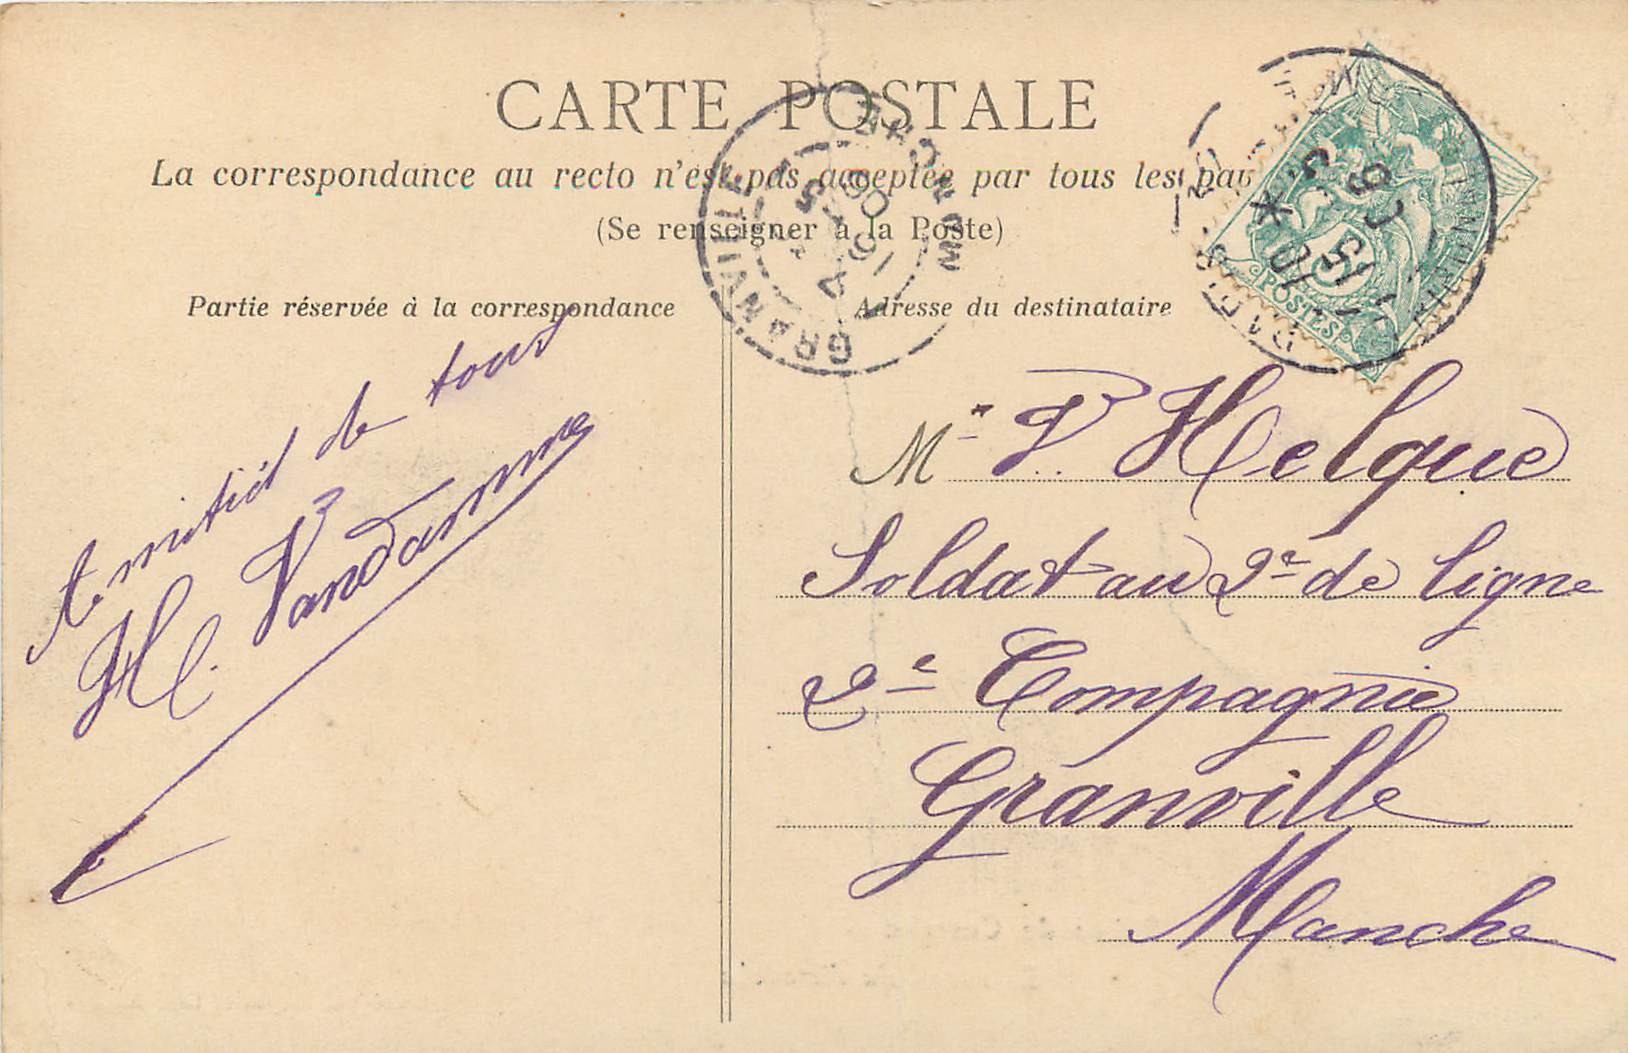 CARTE POSTALE
La correspondance au recto n'est pas acceptée par tous les pay
(Se renseigner à la Poste)
Partie réservée à la correspondance
Adresse du destinataire
GRANVILLE
MANCHE
16 - 5
POSTES
5
Amitié de tous
H. Vandamme
Mr P. Helque
Soldat au 2e de ligne
2e Compagnie
Granville
Manche